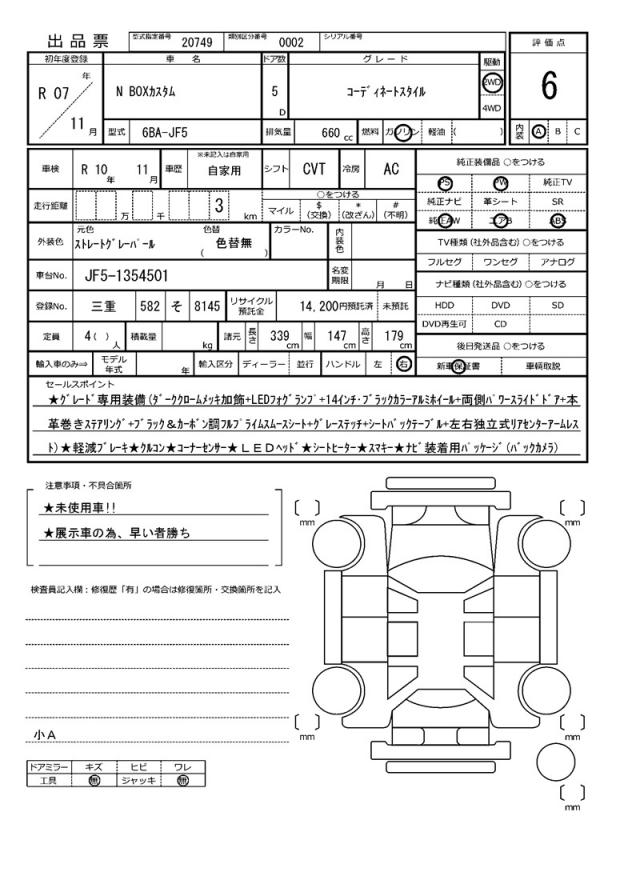 出品票 型式指定番号 20749 類別区分番号 0002 シリアル番号
評価点
6
内装 A B C
初年度登録 車名 ドア数 グレード 駆動
R 07 年 11 月
N BOXカスタム 5 D コーディネートスタイル 2WD
4WD
型式 6BA-JF5 排気量 660 cc 燃料 ガソリン 軽油 ( )
車検 R 10 年 11 月 車歴 ※未記入は自家用 自家用 シフト CVT 冷房 AC
走行距離 万 千 3 km
○をつける
マイル $ (交換) * (改ざん) # (不明)
外装色 元色 ストレートグレーパール 色替 ( 色替無 ) カラーNo. 内装色
車台No. JF5-1354501 名変期限 月 日
登録No. 三重 582 そ 8145 リサイクル預託金 14,200円預託済 未預託
定員 4 ( ) 人 積載量 kg 諸元 長さ 339 cm 幅 147 cm 高さ 179 cm
輸入車のみ⇒ モデル年式 年 輸入区分 ディーラー 並行 ハンドル 左 右
純正装備品 ○をつける
PS PW 純正TV
純正ナビ 革シート SR
純正AW エアB ABS
TV種類 (社外品含む) ○をつける
フルセグ ワンセグ アナログ
ナビ種類 (社外品含む) ○をつける
HDD DVD SD
DVD再生可 CD
後日発送品 ○をつける
新車保証書 車輌取説
セールスポイント
★グレード専用装備(ダーククロームメッキ加飾+LEDフォグランプ+14インチ・ブラックカラーアルミホイール+両側パワースライドドア+本
革巻きステアリング+ブラック&カーボン調フルプライムスムースシート+グレーステッチ+シートバックテーブル+左右独立式リアセンターアームレス
ト)★軽減ブレーキ★クルコン★コーナーセンサー★LEDヘッド★シートヒーター★スマキー★ナビ装着用パッケージ(バックカメラ)
注意事項・不具合箇所
★未使用車!!
★展示車の為、早い者勝ち
検査員記入欄:修復歴「有」の場合は修復箇所・交換箇所を記入
小A
ドアミラー キズ ヒビ ワレ
工具 無 ジャッキ 無
mm
mm
mm
mm
mm